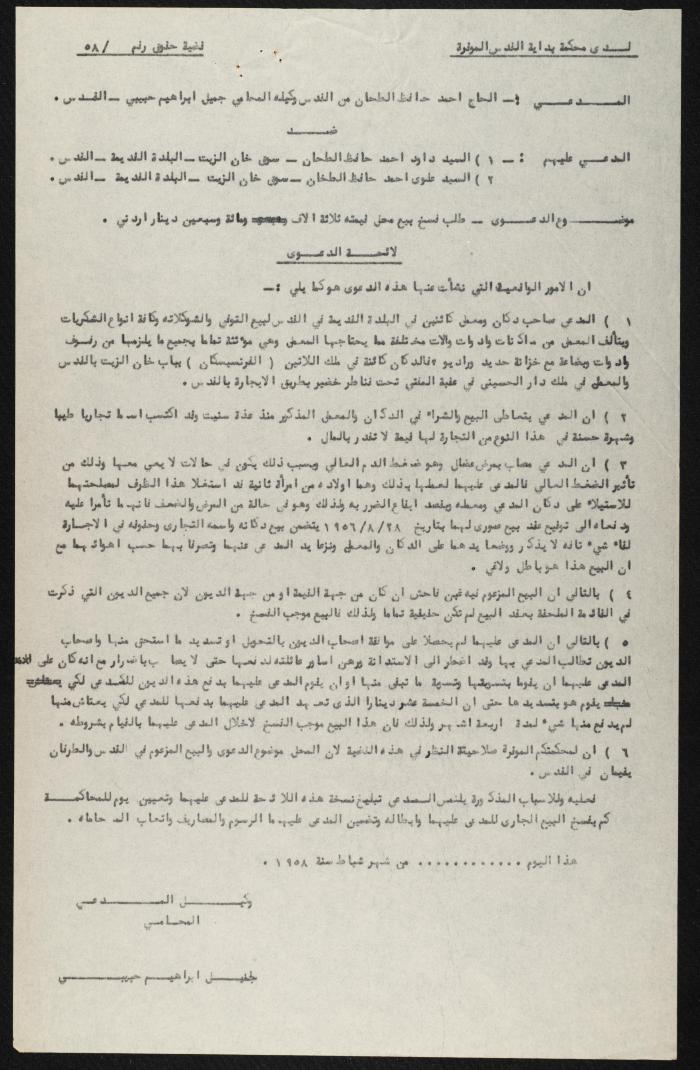 لــدى محكمة بداية القدس الموقرة
قضية حقوق رقم / ٥٨
المــدعــي :ـ الحاج احمد حافظ الطحان من القدس وكيله المحامي جميل ابراهيم حبيبي ــ القدس .
ضــد
المدعــي عليهم :ـ ١ ) السيد داود احمد حافظ الطحان ــ سوق خان الزيت ــ البلدة القديمة ــ القدس .
٢ ) السيد علوي احمد حافظ الطحان ــ سوق خان الزيت ــ البلدة القديمة ــ القدس .
موضــوع الدعــوى ــ طلب فسخ بيع محل قيمته ثلاثة الاف ومائة وسبعين دينار اردني .
لائحــة الدعــوى
ان الامور الواقعية التي نشأت عنها هذه الدعوى هو كما يلي :ـ
١ ) المدعي صاحب دكان ومعمل كائنين في البلدة القديمة في القدس لبيع التوفي والشوكلاته وكافة انواع السكريات
ويتألف المعمل من ماكنات وادوات وآلات مختلفة مما يحتاجها المعمل وهي مؤثثة تماما بجميع ما يلزمها من رفوف
وادوات وبضاعة مع خزانة حديد وراديو ؟ فالدكان كائنة في ملك اللاتين ( الفرنسيسكان ) بباب خان الزيت بالقدس
والمعمل في ملك دار الحسيني في عقبة المفتي تحت قناطر خضير بطريق الايجارة بالقدس .
٢ ) ان المدعي يتعاطى البيع والشراء في الدكان والمعمل المذكور منذ عدة سنيت وقد اكتسب اسما تجاريا طيبا
وشهرة حسنة في هذا النوع من التجارة لها قيمة لا تقدر بالمال .
٣ ) ان المدعي مصاب بمرض عضال وهو ضغط الدم العالي وبسبب ذلك يكون في حالات لا يعي معها وذلك من
تأثير الضغط العالي فالمدعى عليهما لعلمهما بذلك وهما اولاده من امرأة ثانية قد استغلا هذا الظرف لمصلحتهما
للاستيلاء على دكان المدعي ومعمله وبقصد ايقاع الضرر به ولذلك وهو في حالة من المرض والضعف فانهما تأمرا عليه
ودفعاه الى توقيع عقد بيع صوري لهما بتاريخ ٢٨/٨/١٩٥٦ يتضمن بيع دكانه واسمه التجاري وحقوقه في الاجارة
لقاء شيء تافه لا يذكر ووضعا يدهما على الدكان والمعمل ونزعا يد المدعى عنهما وتصرفا بهما حسب اهوائهما مع
ان البيع هذا هو باطل ولاغي .
٤ ) بالتالي ان البيع المزعوم فيه غبن فاحش ان كان من جهة القيمة او من جهة الديون لان جميع الديون التي ذكرت
في القائمة الملحقة بعقد البيع لم تكن حقيقية تماما ولذلك فالبيع موجب الفسخ .
٥ ) بالتالي ان المدعى عليهما لم يحصلا على موافقة اصحاب الديون بالتحويل او تسديد ما استحق منها واصحاب
الديون تطالب المدعي بها وقد اضطر الى الاستدانة ورهن اساور عائلته لدفعها حتى لا يصاب باضرار مع انه كان على
المدعى عليهما ان يقوما بتسويقها وتسوية ما تبقى منها او ان يقوم المدعى عليهما بدفع هذه الديون للمدعي لكي
يقوم هو بتسديدها حتى ان الخمسة عشر دينارا الذي تعهد المدعى عليهما بدفعها للمدعي لكي يعتاش منها
لم يدفع منها شيء لمدة اربعة اشهر ولذلك فان هذا البيع موجب الفسخ لاخلال المدعى عليهما بالقيام بشروطه .
٦ ) ان لمحكمتكم الموقرة صلاحية النظر في هذه القضية لان المحل موضوع الدعوى والبيع المزعوم في القدس والطرفان
يقيمان في القدس .
فعليه وللاسباب المذكورة يلتمس المدعي تبليغ نسخة هذه اللائحة للمدعى عليهما وتعيين يوم للمحاكمــة
كم بفسخ البيع الجاري للمدعى عليهما وابطاله وتضمين المدعى عليهما الرسوم والمصاريف واتعاب المحاماه .
هذا اليوم ............ من شهر شباط سنة ١٩٥٨ .
وكيــل المــدعــي
المحــامــي
جميــل ابراهيــم حبيبــي